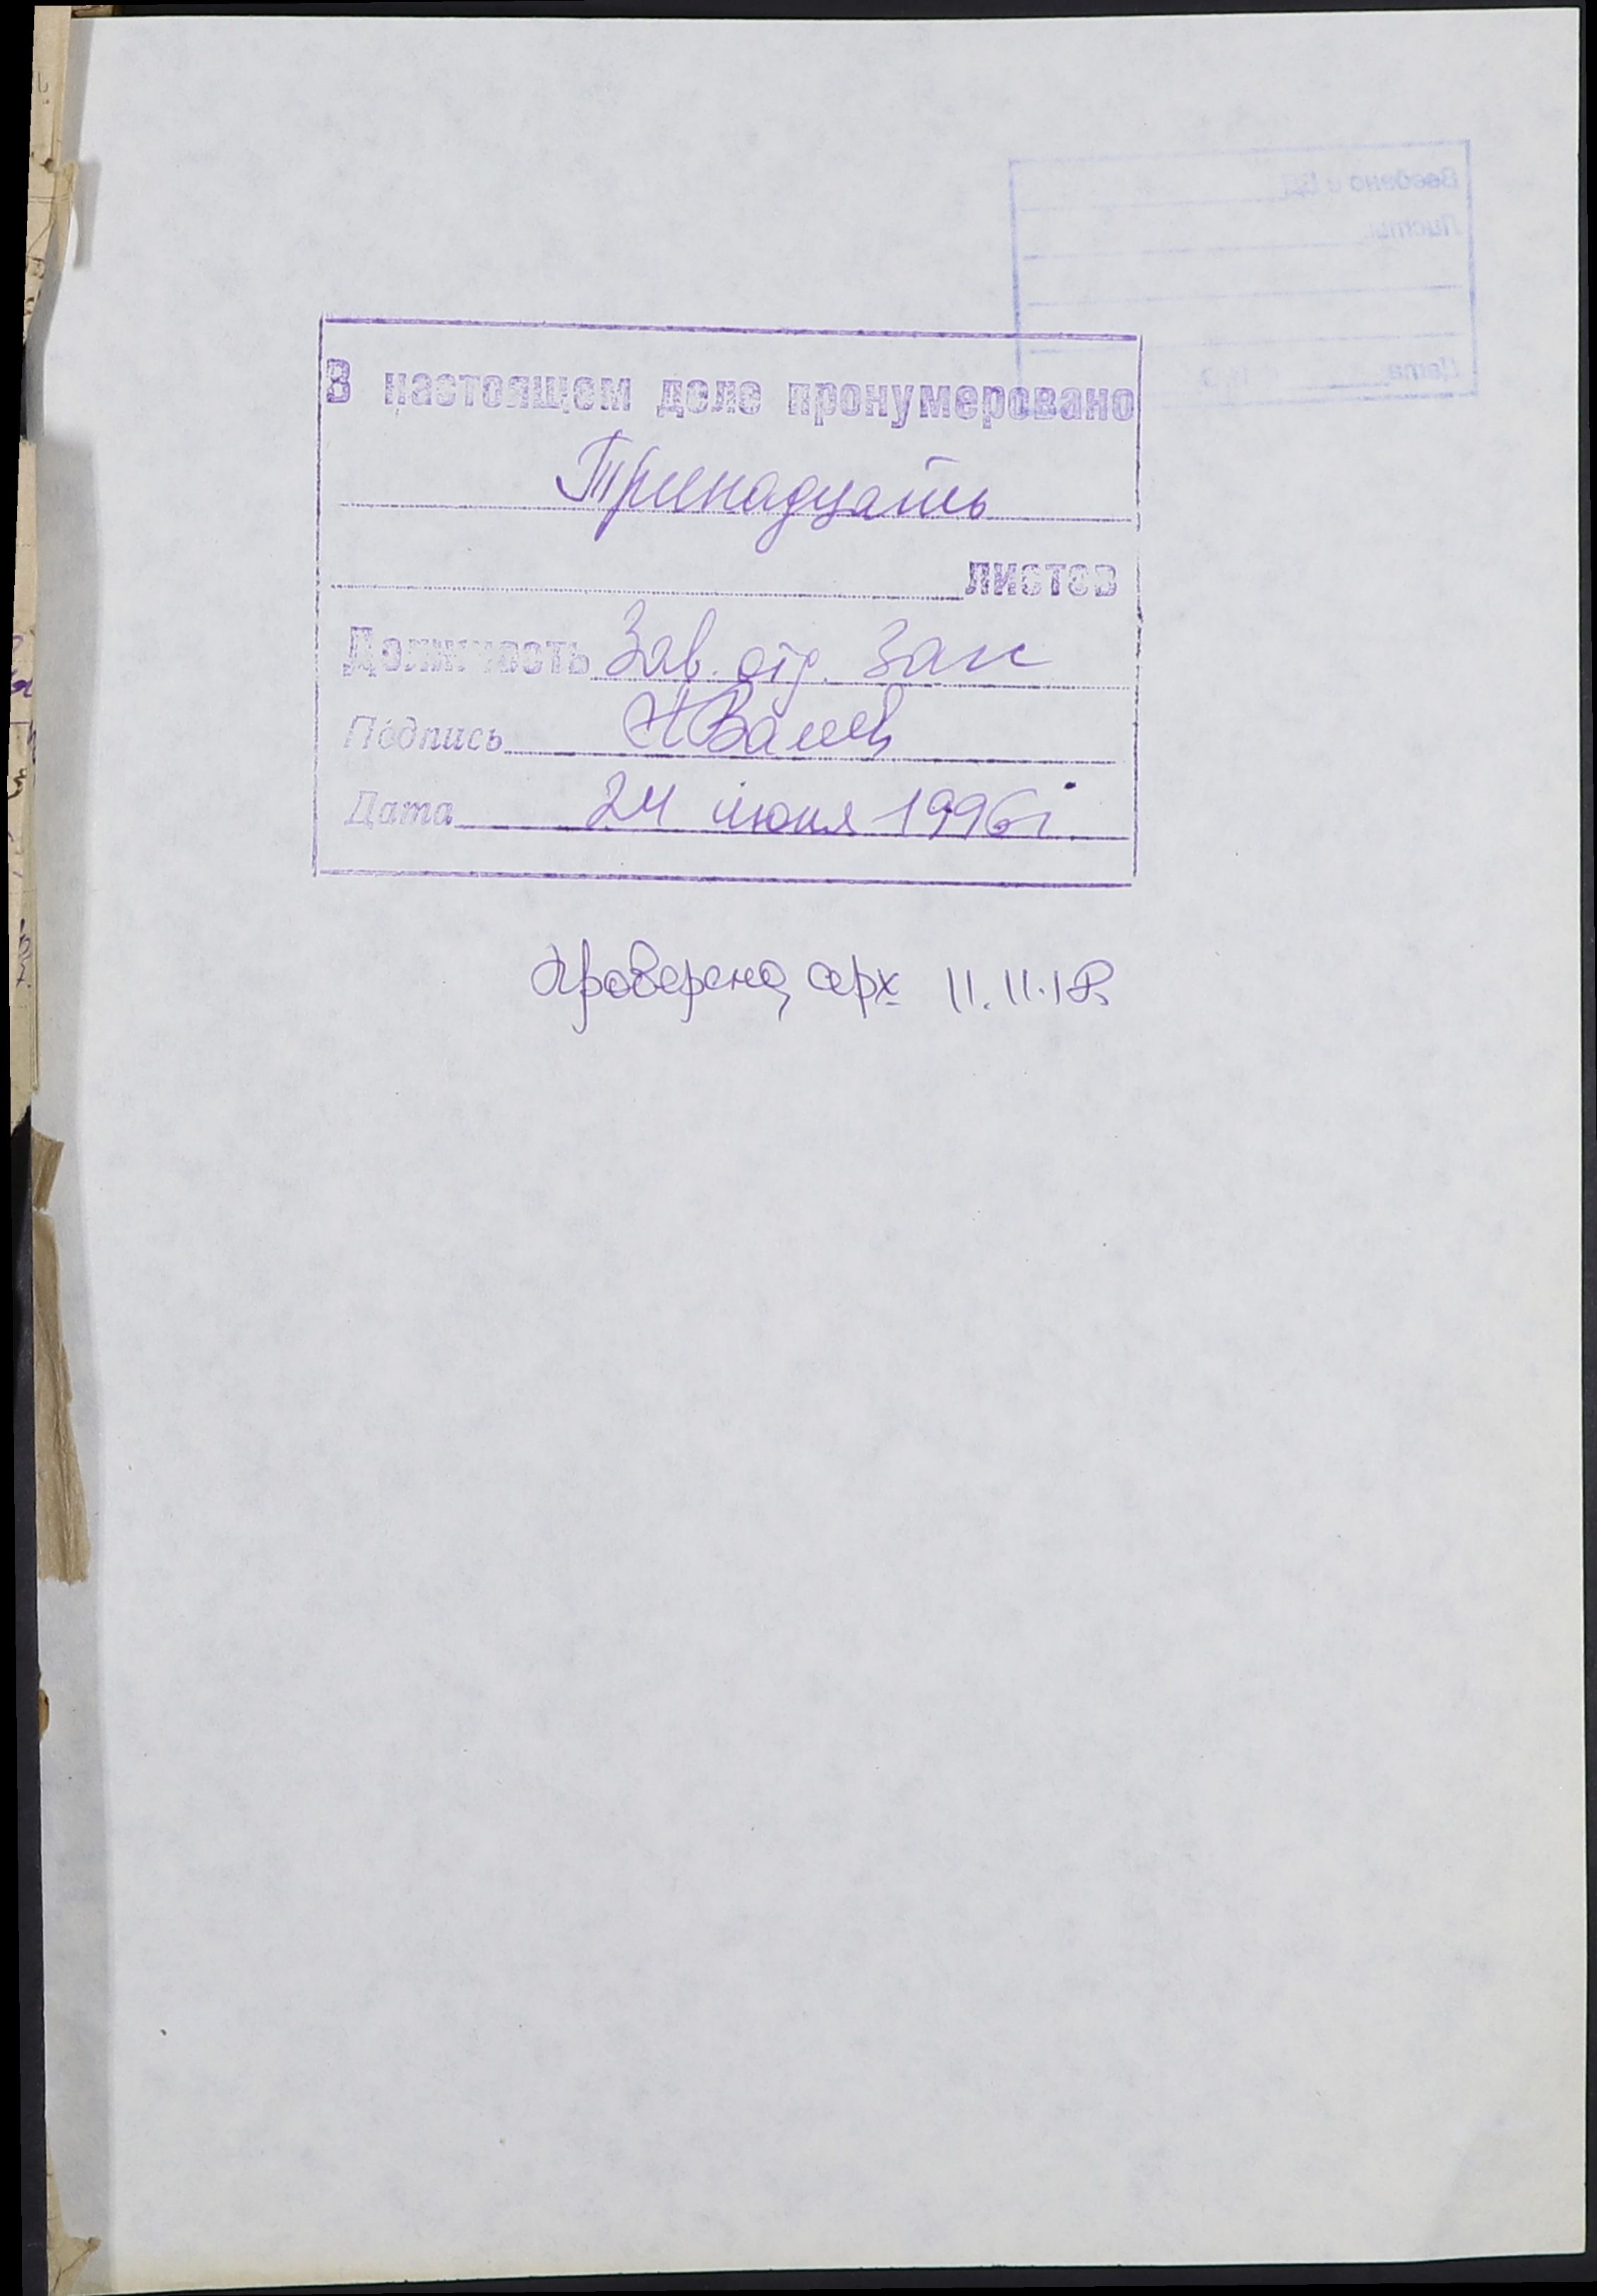 Введено в БД
Листы:
Дата
В настоящем деле пронумеровано
Тринадцать
листов
Должность Зав. отд. Зак
Подпись
Дата 24 июня 1996г.
Проверена арх 11.11.18